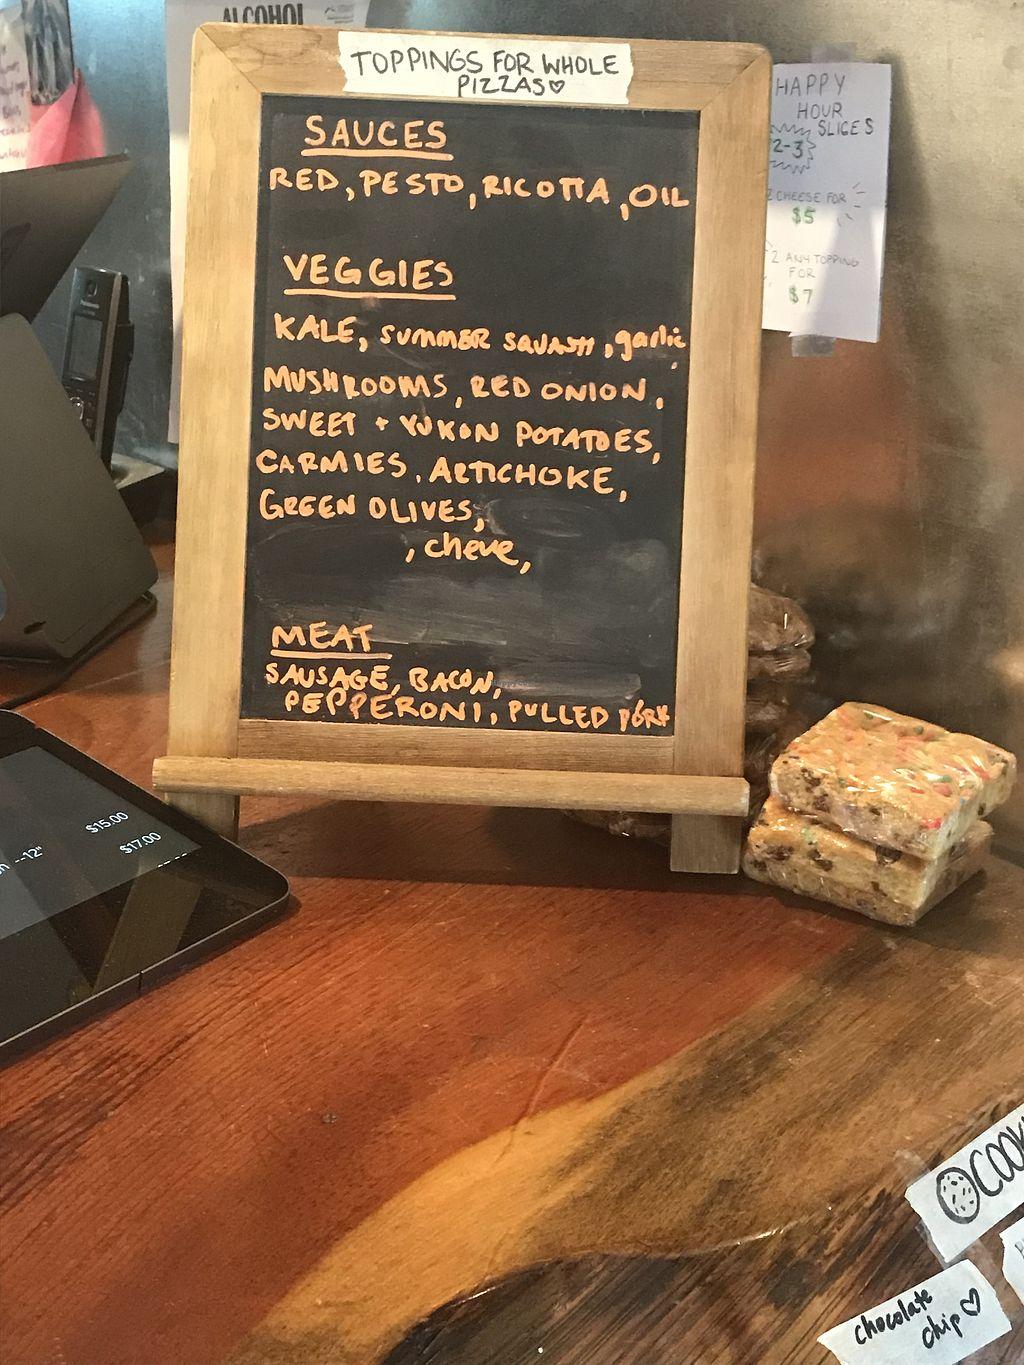 ALCOHOL
TOPPINGS FOR WHOLE
PIZZAS♡
SAUCES
RED, PESTO, RICOTTA, OIL
VEGGIES
KALE, SUMMER SQUASH, garlic,
MUSHROOMS, RED ONION,
SWEET + YUKON POTATOES,
CARMIES, ARTICHOKE,
GREEN OLIVES,
, cheve,
MEAT
SAUSAGE, BACON,
PEPPERONI, PULLED PORK
HAPPY
HOUR
SLICES
2-3
2 CHEESE FOR
$5
2 ANY TOPPING
FOR
$7
$15.00
--12" $17.00
COOKI
chocolate
chip♡